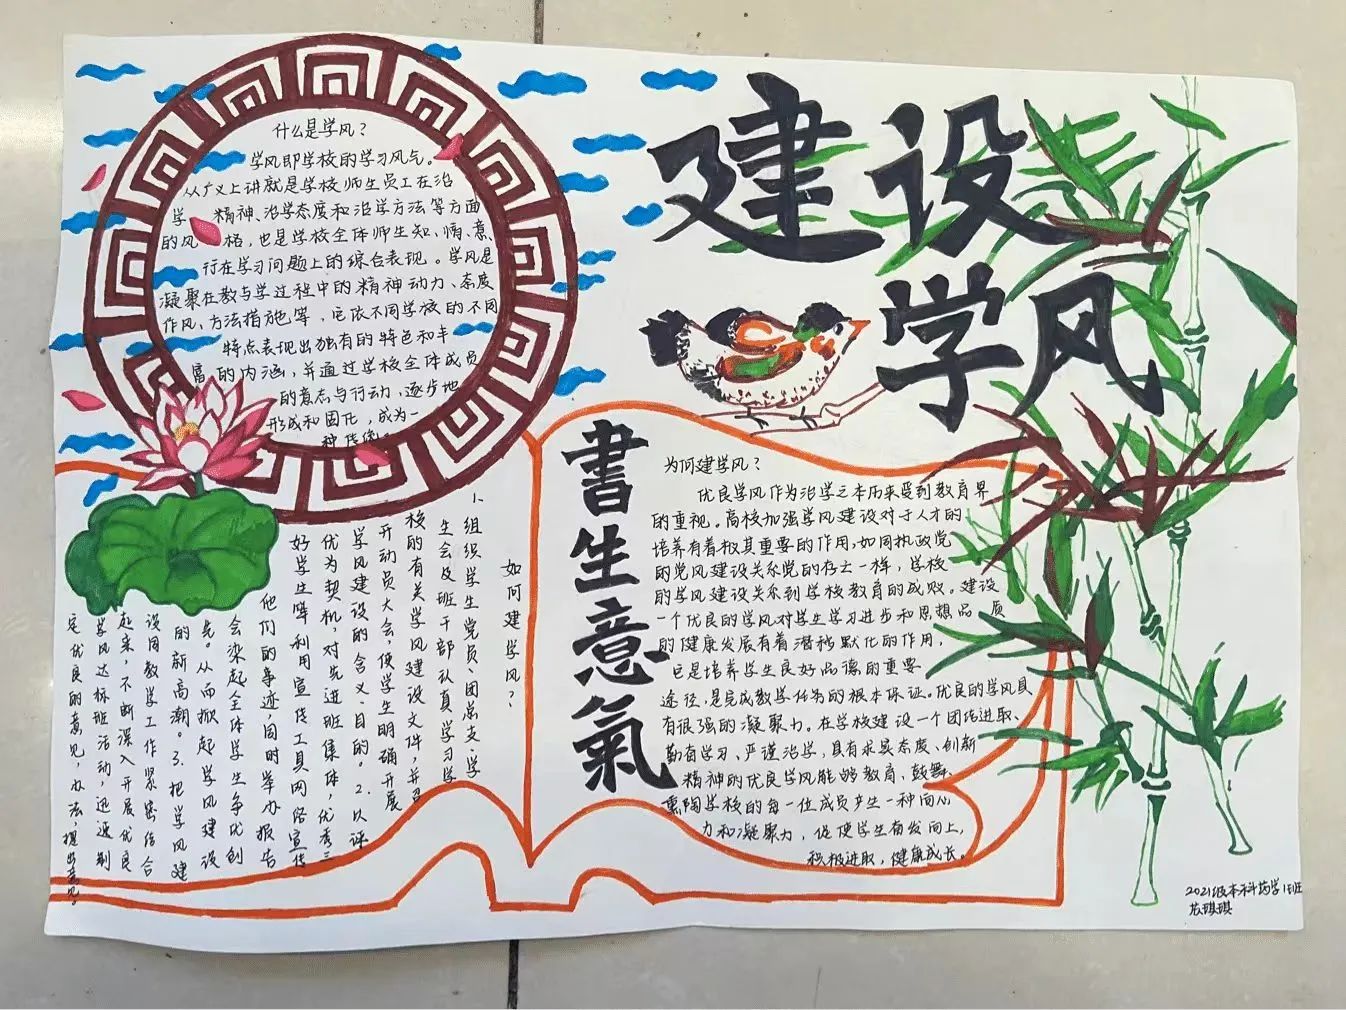 建设
学风
什么是学风？
学风即学校的学习风气。
从广义上讲就是学校师生员工在治
学精神、治学态度和治学方法等方面
的风格，也是学校全体师生知、情、意、
行在学习问题上的综合表现。学风是
凝聚在教与学过程中的精神动力、态度
作风、方法措施等，它依不同学校的不同
特点表现出独有的特色和丰
富的内涵，并通过学校全体成员
的意志与行动，逐步地
形成和固化，成为一
种传统。
書生意氣
为何建学风？
优良学风作为治学之本历来受到教育界
的重视。高校加强学风建设对于人才的
培养有着极其重要的作用，如同执政党
的党风建设关系党的存亡一样，学校
的学风建设关系到学校教育的成败。建设
一个优良的学风对学生学习进步和思想品质
的健康发展有着潜移默化的作用，
它是培养学生良好品德的重要
途径，是完成教学任务的根本保证。优良的学风具
有很强的凝聚力。在学校建设一个团结进取、
勤奋学习、严谨治学，具有求实态度、创新
精神的优良学风能够教育、鼓舞、
熏陶学校的每一位成员产生一种向心
力和凝聚力，促使学生奋发向上，
积极进取，健康成长。
如何建学风？
1、组织学生党员、团总支、学
生会及班干部认真学习学
校的有关学风建设文件，并召
开动员大会，使学生明确开展
学风建设的含义、目的。2、以评
优为契机，对先进班集体，优秀三
好学生等利用宣传工具网络宣传
他们的事迹，同时举办报告
会染起全体学生争优创
先。从而掀起学风建设
的新高潮。3、把学风建
设同教学工作紧密结合
起来，不断深入开展优良
学风达标班活动，迅速制
定优良的意见，办法，提出意见。
2021级本科药学1班